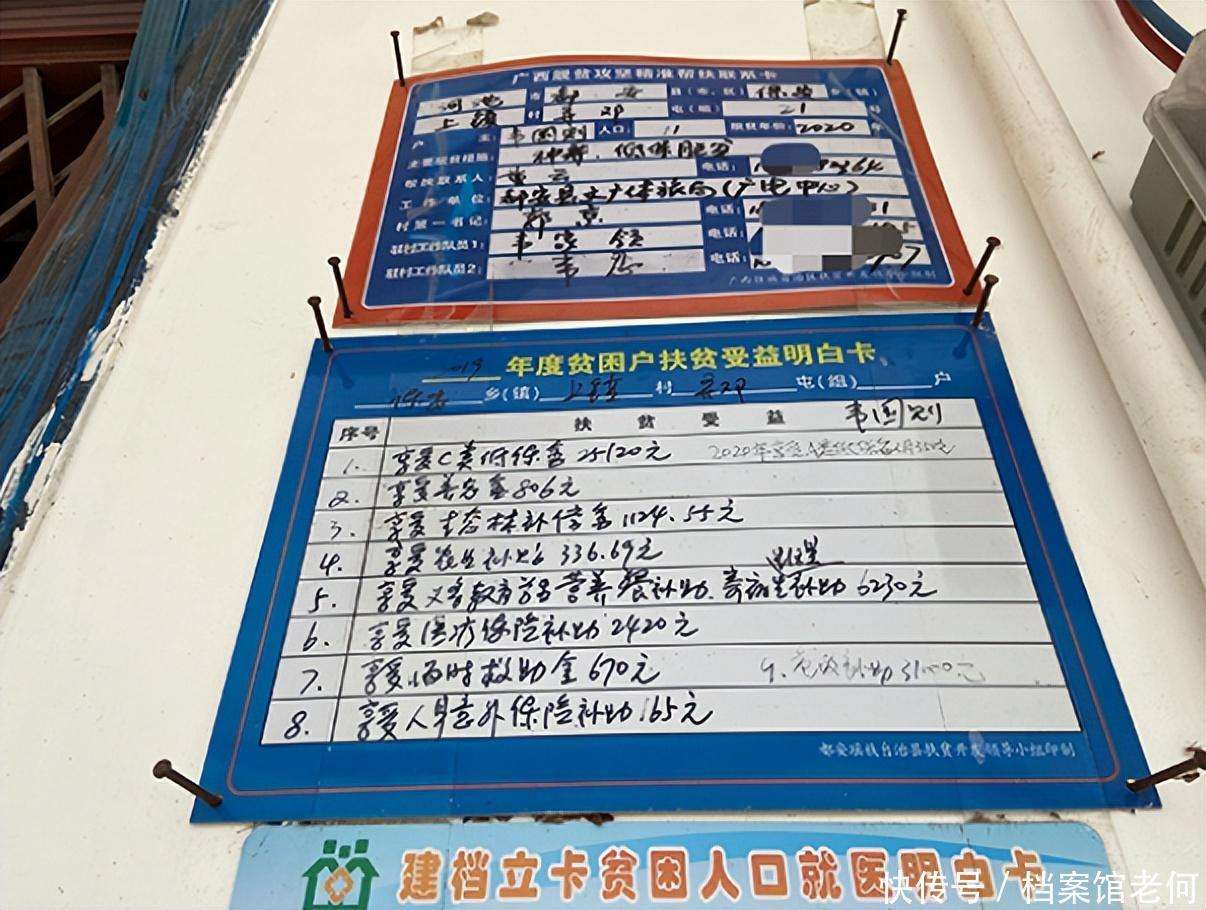 广西脱贫攻坚精准帮扶联系卡
河池 市 都安 县(市、区) 保安 乡(镇)
上镇 村 弄邓 屯(组) 21 号
户主: 韦国则 人口: 11 脱贫年份: 2020 年
主要致贫措施: 种养、低保脱贫
帮扶联系人: 云 电话: 64
工作单位: 都安县文广体旅局(广电中心)
村第一书记: 京 电话: 1
驻村工作队员1: 韦 电话:
驻村工作队员2: 韦 电话: 7
广西壮族自治区扶贫开发领导小组制
2019 年度贫困户扶贫受益明白卡
保安 乡(镇) 上镇 村 弄邓 屯(组) 户
序号 扶贫受益 韦国则
1. 享受C类低保金25120元 2020年享受
2. 享受养老金806元
3. 享受生态林补偿金1124.55元
4. 享受农生补贴336.69元
5. 享受义务教育学生营养餐补助、寄宿生补助6230元
6. 享受医疗保险补助2420元
7. 享受临时救助金670元 9. 危改补助
8. 享受人身意外保险补助165元
都安瑶族自治县扶贫开发领导小组印制
建档立卡贫困人口就医明白卡
快传号/档案馆老何